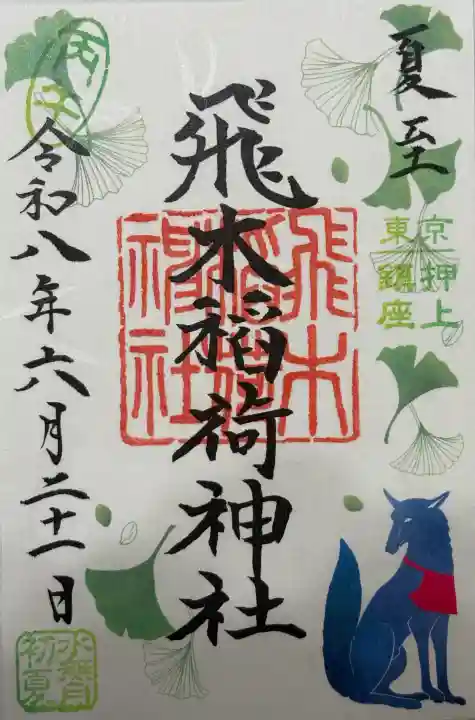 夏至
東京
押上
鎮座
飛木稲荷神社
飛木
稲荷
神社
丙午
令和八年六月二十一日
水無月
初夏